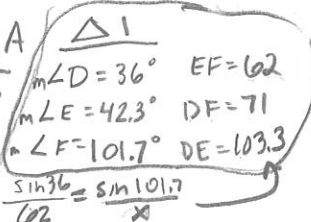 A △ 1
m∠D = 36° EF = 62
m∠E = 42.3° DF = 71
m∠F = 101.7° DE = 103.3
sin36/62 = sin101.7/x